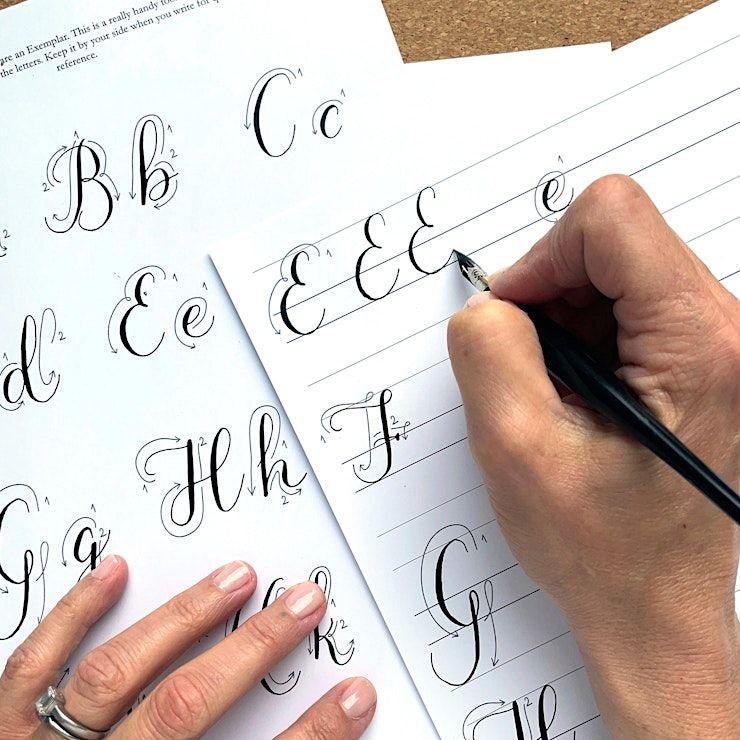 are an Exemplar. This is a really handy
the letters. Keep it by your side when you write for
reference.
B b
C c
d
E e
G g
H h
k
E E E e
F
G